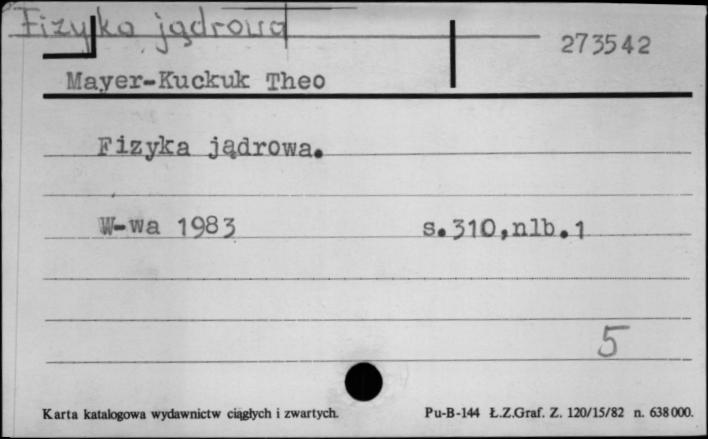 Fizyka jądrowa
273542
Mayer-Kuckuk Theo
Fizyka jądrowa.
W-wa 1983 s.310,nlb.1
5
Karta katalogowa wydawnictw ciągłych i zwartych. Pu-B-144 Ł.Z.Graf. Z. 120/15/82 n. 638000.